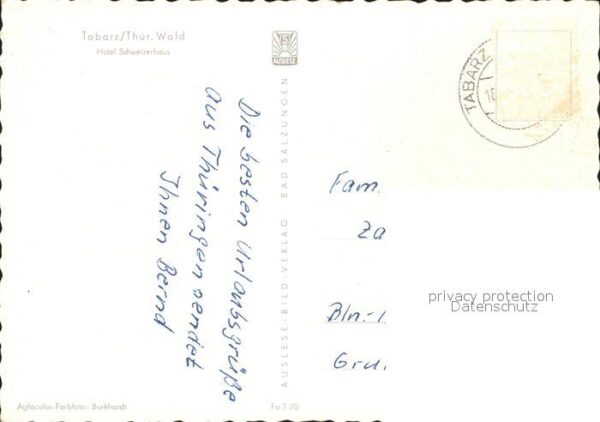 Tabarz/Thür. Wald
Hotel Schweizerhaus
AUSLESE
TABARZ
Die besten Urlaubsgrüße
aus Thüringen sendet
Ihnen Bernd
AUSLESE-BILD-VERLAG BAD SALZUNGEN
Fam.
Za
Bln.-
Gru.
privacy protection
Datenschutz
Agfacolor-Farbfoto: Burkhardt
Fa T 20